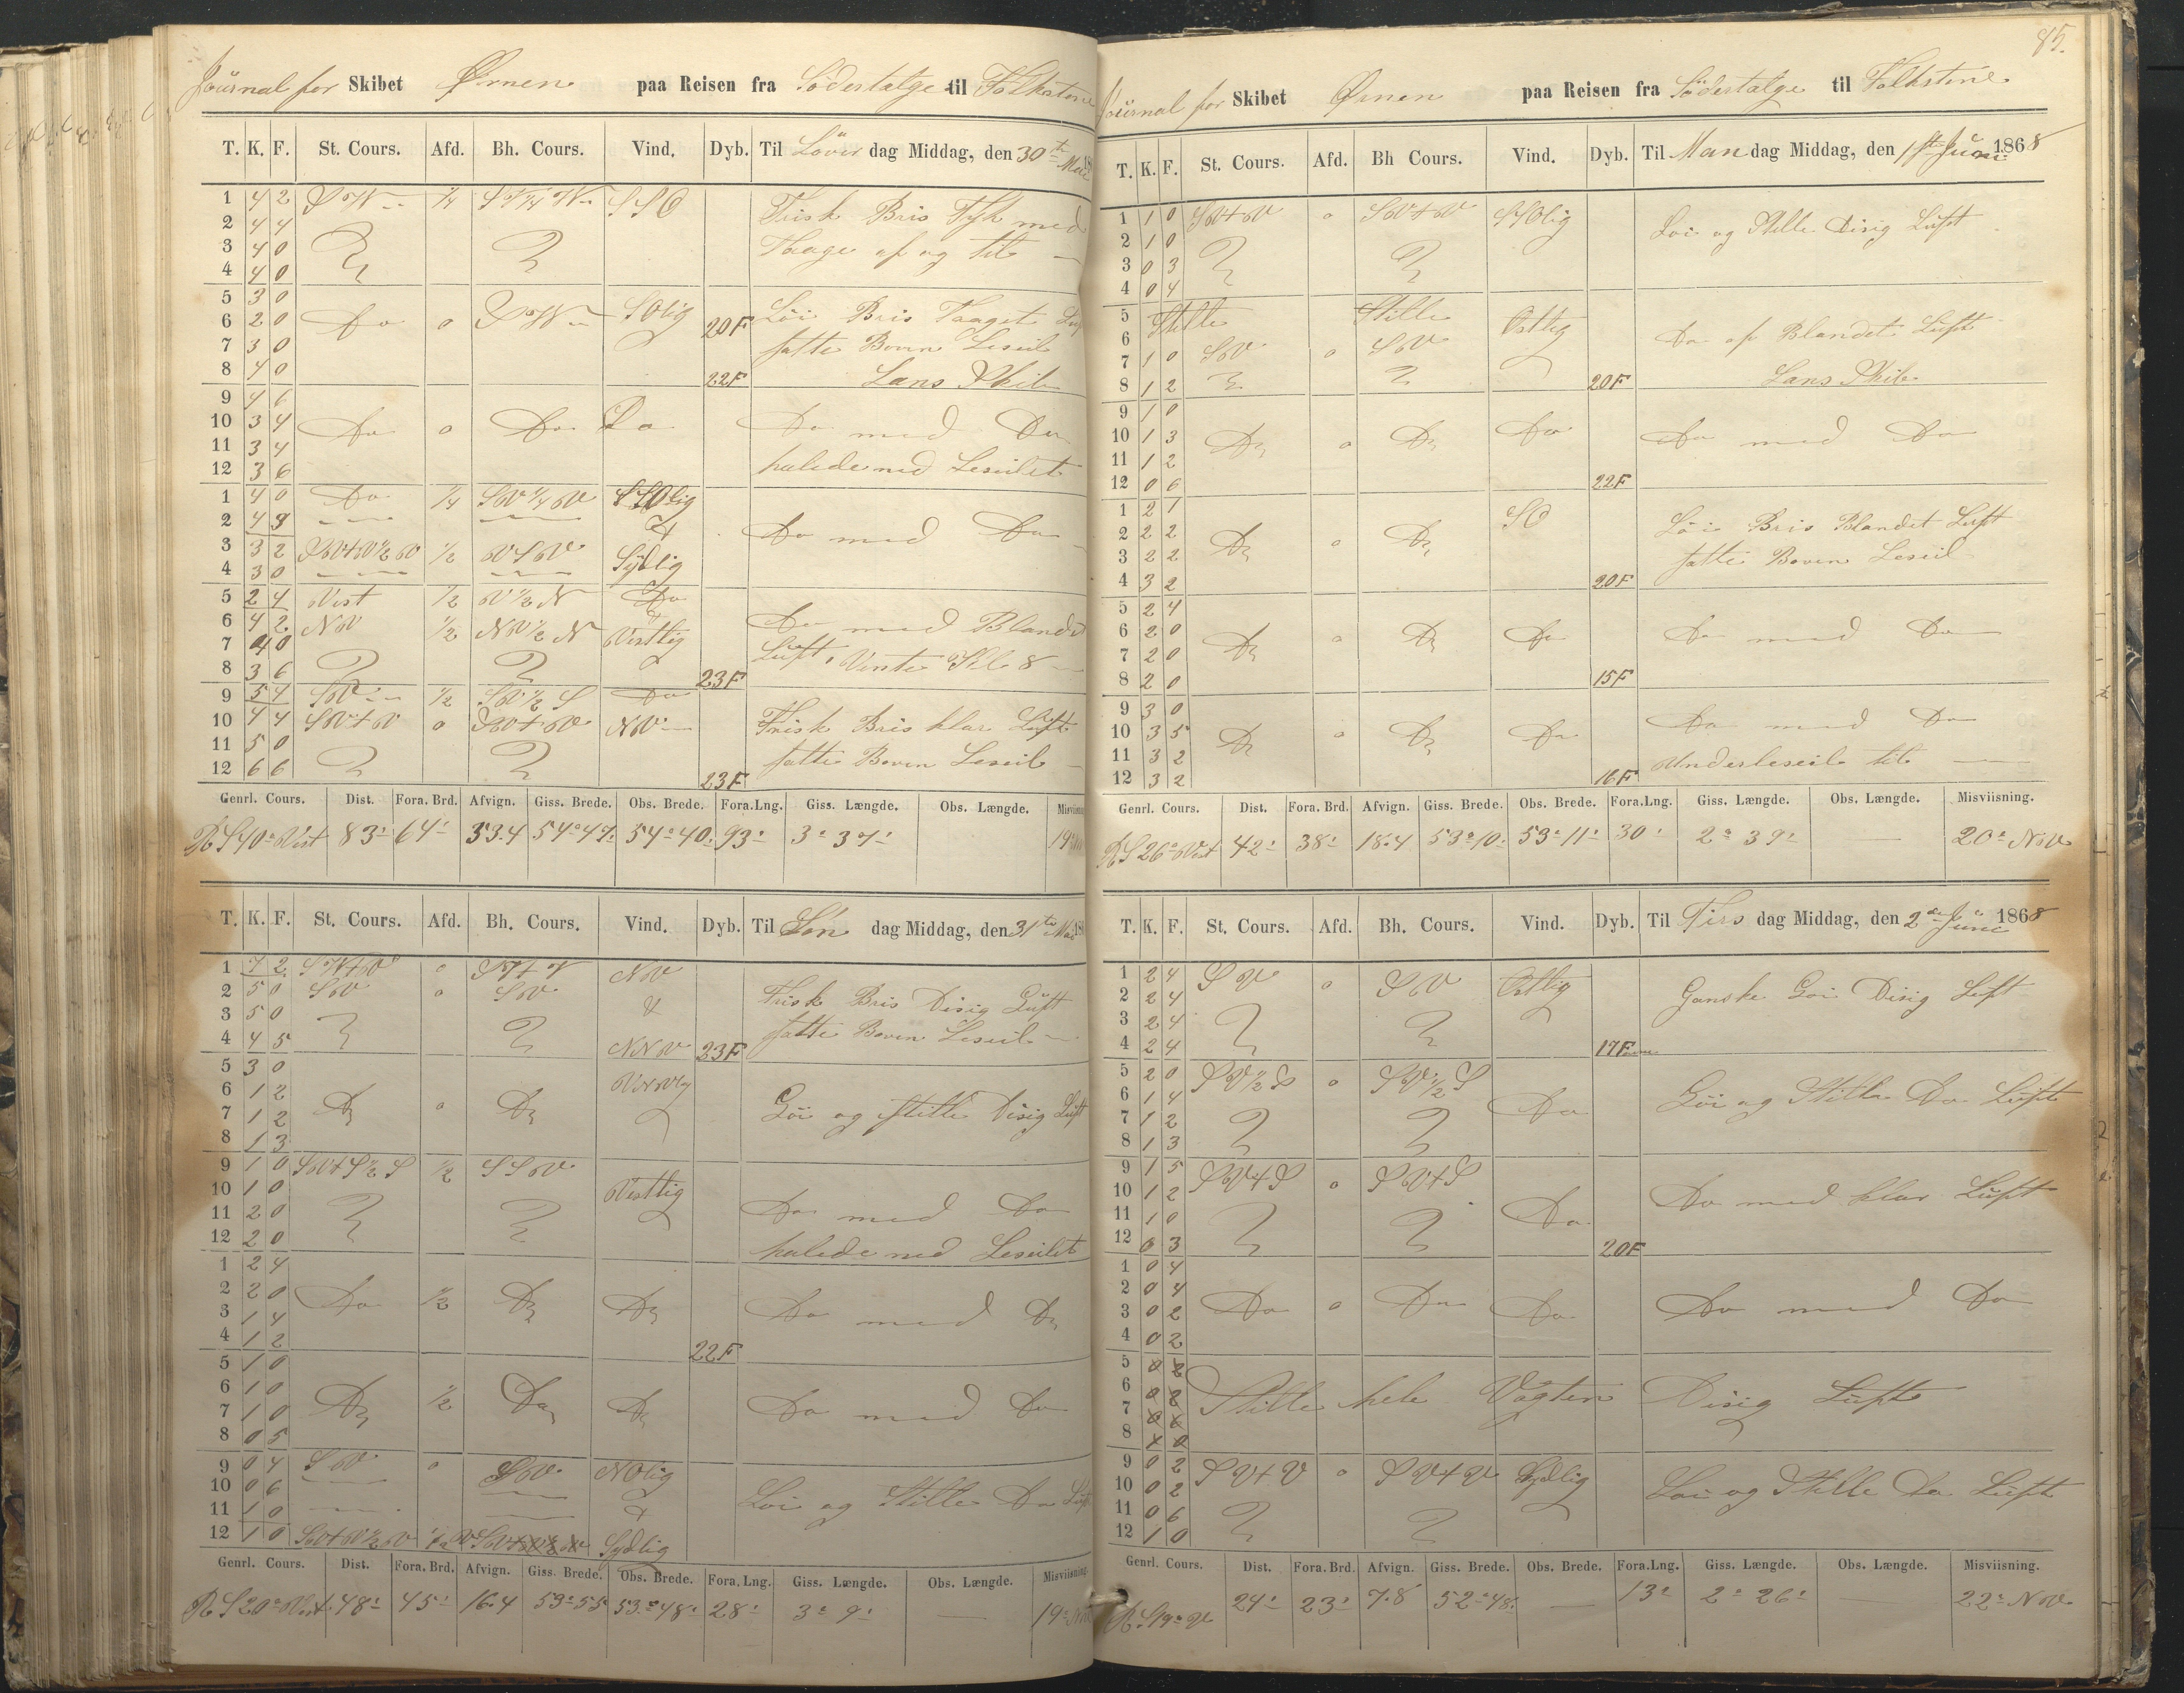 Journal for Skibet Ørnen paa Reisen fra Södertalge til Folkstone
T. K. F. St. Cours. Afd. Bh. Cours. Vind. Dyb. Til Löver dag Middag, den 30te Mai 18
1 4 2 SW ¼ S SO Frisk Bris Tyk med
2 4 4 Taage af og til
3 4 0
4 4 0
5 3 0
6 2 0 Do 0 SW SOlig 20F Löi Bris Taaget Luft
7 3 0 satte Boven Leseil
8 4 0 22F Lans Skib
9 4 6
10 3 4 Do 0 Do Do Do med Do
11 3 4 halede ned Leseilet
12 3 6
1 4 0 Do ¼ SW¼W SSOlig
2 4 3 Do med Do
3 3 2 SW+W½W ½ WSW Sydlig
4 3 0
5 2 4 Vest ½ W½N Do
6 4 2 NW ½ NW½N Vestlig Do med Blandet
7 4 0 Luft, Vente Kl 8
8 3 6 23F
9 5 4 SW ½ SW½S Do
10 4 4 SW+W 0 SW+W NW Frisk Bris klar Luft
11 5 0 satte Boven Leseil
12 6 6 23F
Genrl. Cours. Dist. Fora. Brd. Afvign. Giss. Brede. Obs. Brede. Fora.Lng. Giss. Længde. Obs. Længde. Misviisning
R S40°Vest 83' 64' 53.4 54°47' 54°40' 93' 3°37' 19
T. K. F. St. Cours. Afd. Bh. Cours. Vind. Dyb. Til Søn dag Middag, den 31te Mai 18
1 7 2 SW+W 0 SW+W NW
2 5 0 SW 0 SW Frisk Bris Disig Luft
3 5 0 satte Boven Leseil
4 4 5 NNW 23F
5 3 0
6 1 2
7 1 2 Do 0 Do Löi og stille Disig Luft
8 1 3
9 1 0 SW+S½S ½ SSW
10 1 0 Vestlig
11 2 0 Do med Do
12 2 0 halede ned Leseilet
1 2 4
2 2 0 Do ½ Do Do Do med Do
3 1 4
4 1 2 22F
5 1 0
6 1 0 Do ½ Do Do Do med Do
7 1 0
8 0 5
9 0 4 SW 0 SW NOlig
10 0 6 Löi og Stille Do Luft
11 1 0
12 1 0 SW+W½W Sydlig
Genrl. Cours. Dist. Fora. Brd. Afvign. Giss. Brede. Obs. Brede. Fora. Lng. Giss. Længde. Obs. Længde. Misviisning.
R S20°Vest 48' 45' 16.4 53°55 53°48' 28' 3°9' — 19
85.
Journal for Skibet Ørnen paa Reisen fra Södertalge til Folkstone
T. K. F. St. Cours. Afd. Bh Cours. Vind. Dyb. Til Man dag Middag, den 1ste Juni 1868
1 1 0 SW+W 0 SW+W SSOlig Löi og Stille Disig Luft
2 1 0
3 0 3
4 0 4
5 Stille Stille Ostlig
6 Do af Blandet Luft
7 1 0 SW 0 SW
8 1 2 20F Lans Skib
9 1 0
10 1 3 Do 0 Do Do Do med Do
11 1 2
12 0 6 22F
1 2 1 SO
2 2 2 Do 0 Do Löi Bris Blandet Luft
3 2 2 satte Boven Leseil
4 3 2 20F
5 2 4
6 2 0 Do 0 Do Do Do med Do
7 2 0
8 2 0 15F
9 3 0
10 3 5 Do 0 Do Do Do med Do
11 3 2 Underleseil til
12 3 2 16F
Genrl. Cours. Dist. Fora. Brd. Afvign. Giss. Brede. Obs. Brede. Fora.Lng. Giss. Længde. Obs. Længde. Misviisning.
R S26°Vest 42' 38' 18.4 53°10' 53°11' 30' 2°39' — 20° NW
T. K. F. St. Cours. Afd. Bh. Cours. Vind. Dyb. Til Tirs dag Middag, den 2den Juni 1868
1 2 4 SW 0 SW Ostlig
2 2 4 Ganske Löi Disig Luft
3 2 4
4 2 4 17F
5 2 0 SW½S 0 SW½S
6 1 4 Do Löi og Stille Do Luft
7 1 2
8 1 3
9 1 5 SW+S 0 SW+S
10 1 2 Do Do med klar Luft
11 1 0
12 0 3 20F
1 0 4
2 0 4 Do 0 Do Do Do med Do
3 0 2
4 0 2
5
6 Stille hele Vagten Disig Luft
7
8
9 0 2 SW+W 0 SW+W Sydlig
10 0 2 Löi og Stille Do Luft
11 0 6
12 1 0
Genrl. Cours. Dist. Fora. Brd. Afvign. Giss. Brede. Obs. Brede. Fora.Lng. Giss. Længde. Obs. Længde. Misviisning.
R. S19°W 24' 23' 7.8 52°48' — 13' 2°26' — 22° NW